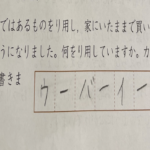 ではあるものをり用し、家にいたままで買い
うになりました。何をり用していますか。カ
書きま
ウーバーイー